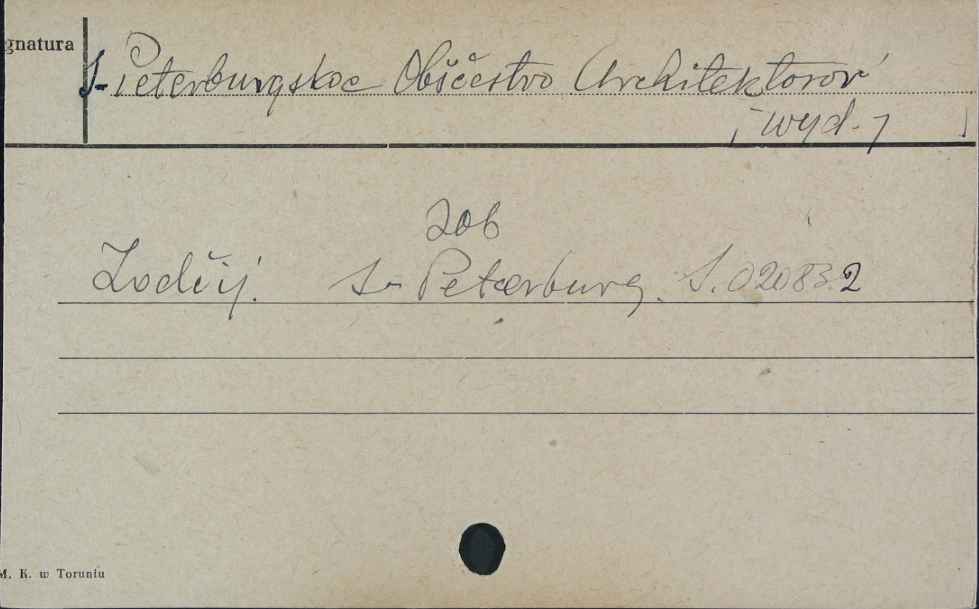 gnatura
S-Peterburgskoe Obščestvo Architektorov
[wyd.]
zob
Zodčij. S-Peterburg. S.02083.2
M. K. w Toruniu